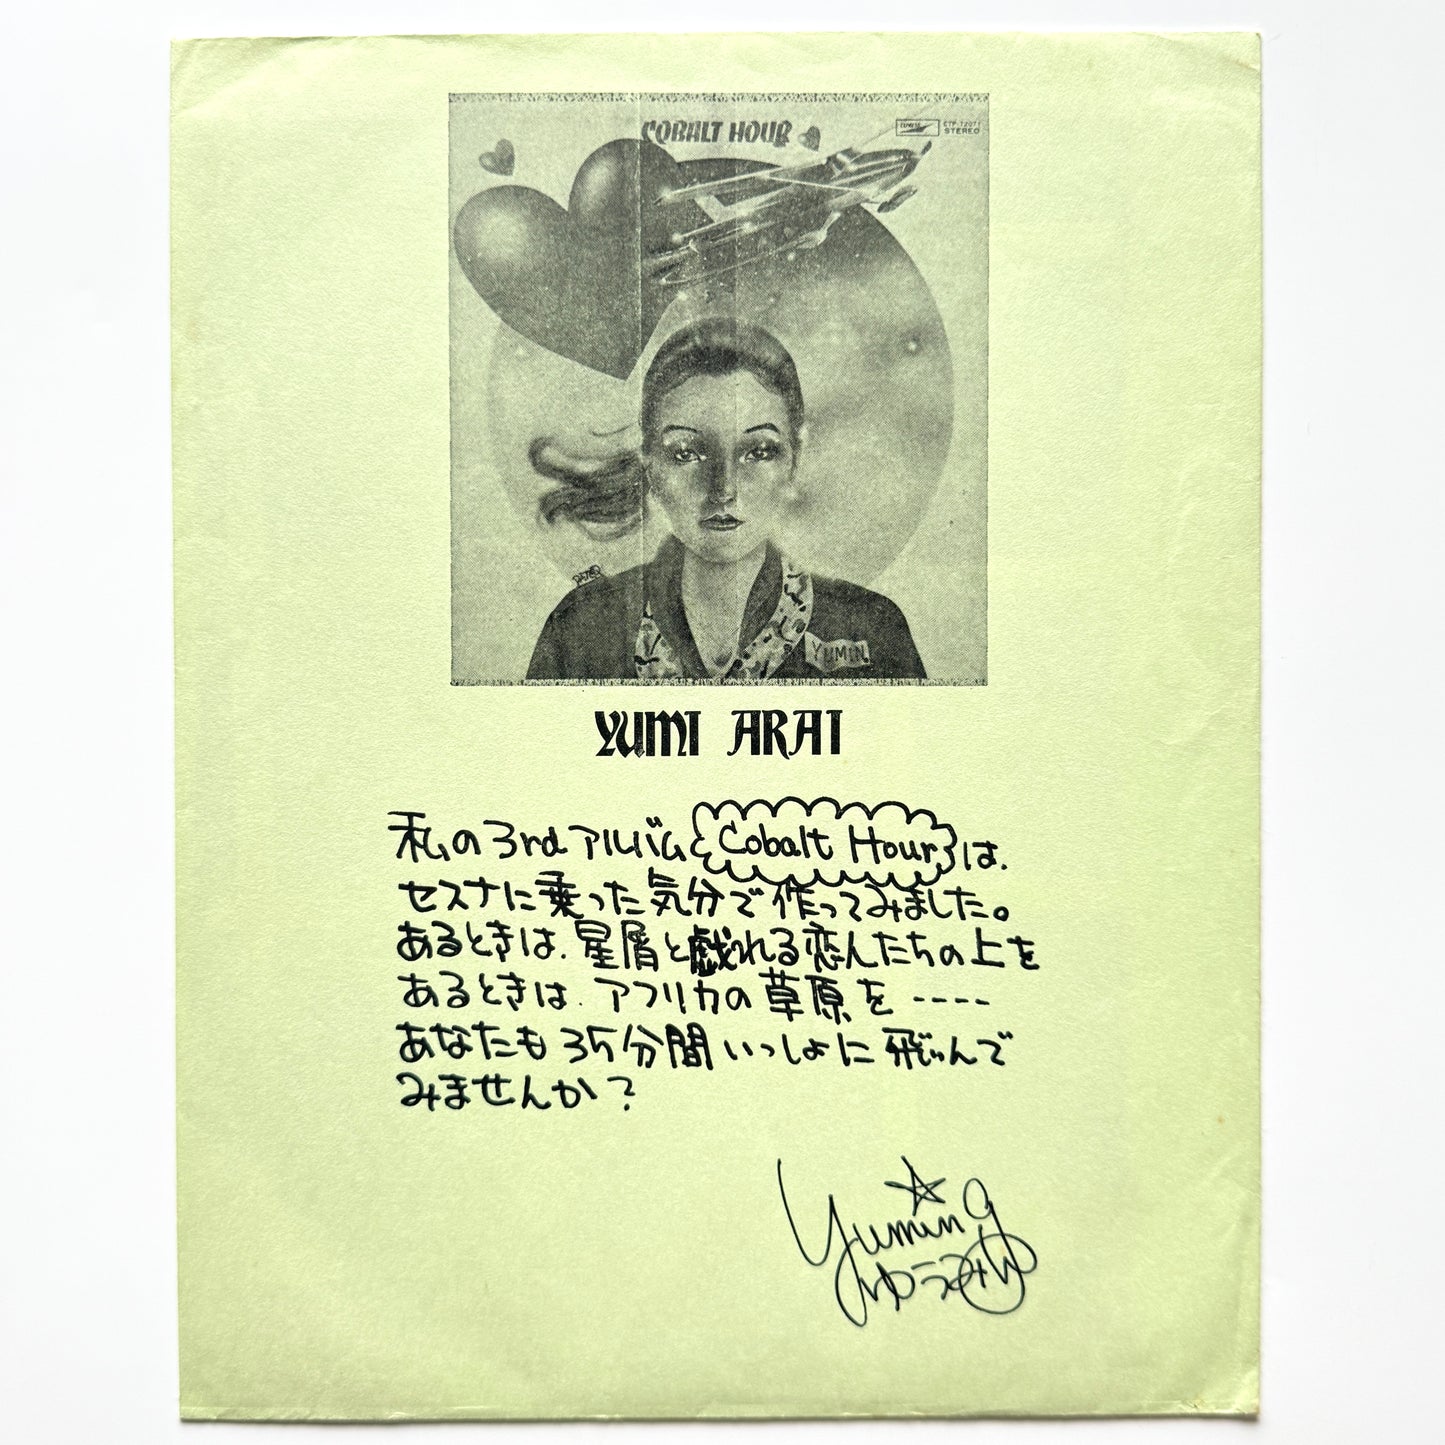 COBALT HOUR
ETP-72071
STEREO
YUMIN
YUMI ARAI
私の3rdアルバムCobalt Hourは.
セスナに乗った気分で作ってみました。
あるときは.星屑と戯れる恋人たちの上を
あるときは.アフリカの草原を----
あなたも35分間いっしょに飛んで
みませんか?
Yuming
ゆうみん